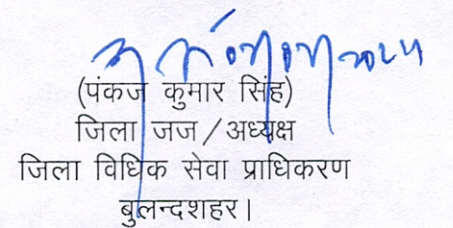 (पंकज कुमार सिंह)
जिला जज / अध्यक्ष
जिला विधिक सेवा प्राधिकरण
बुलन्दशहर।